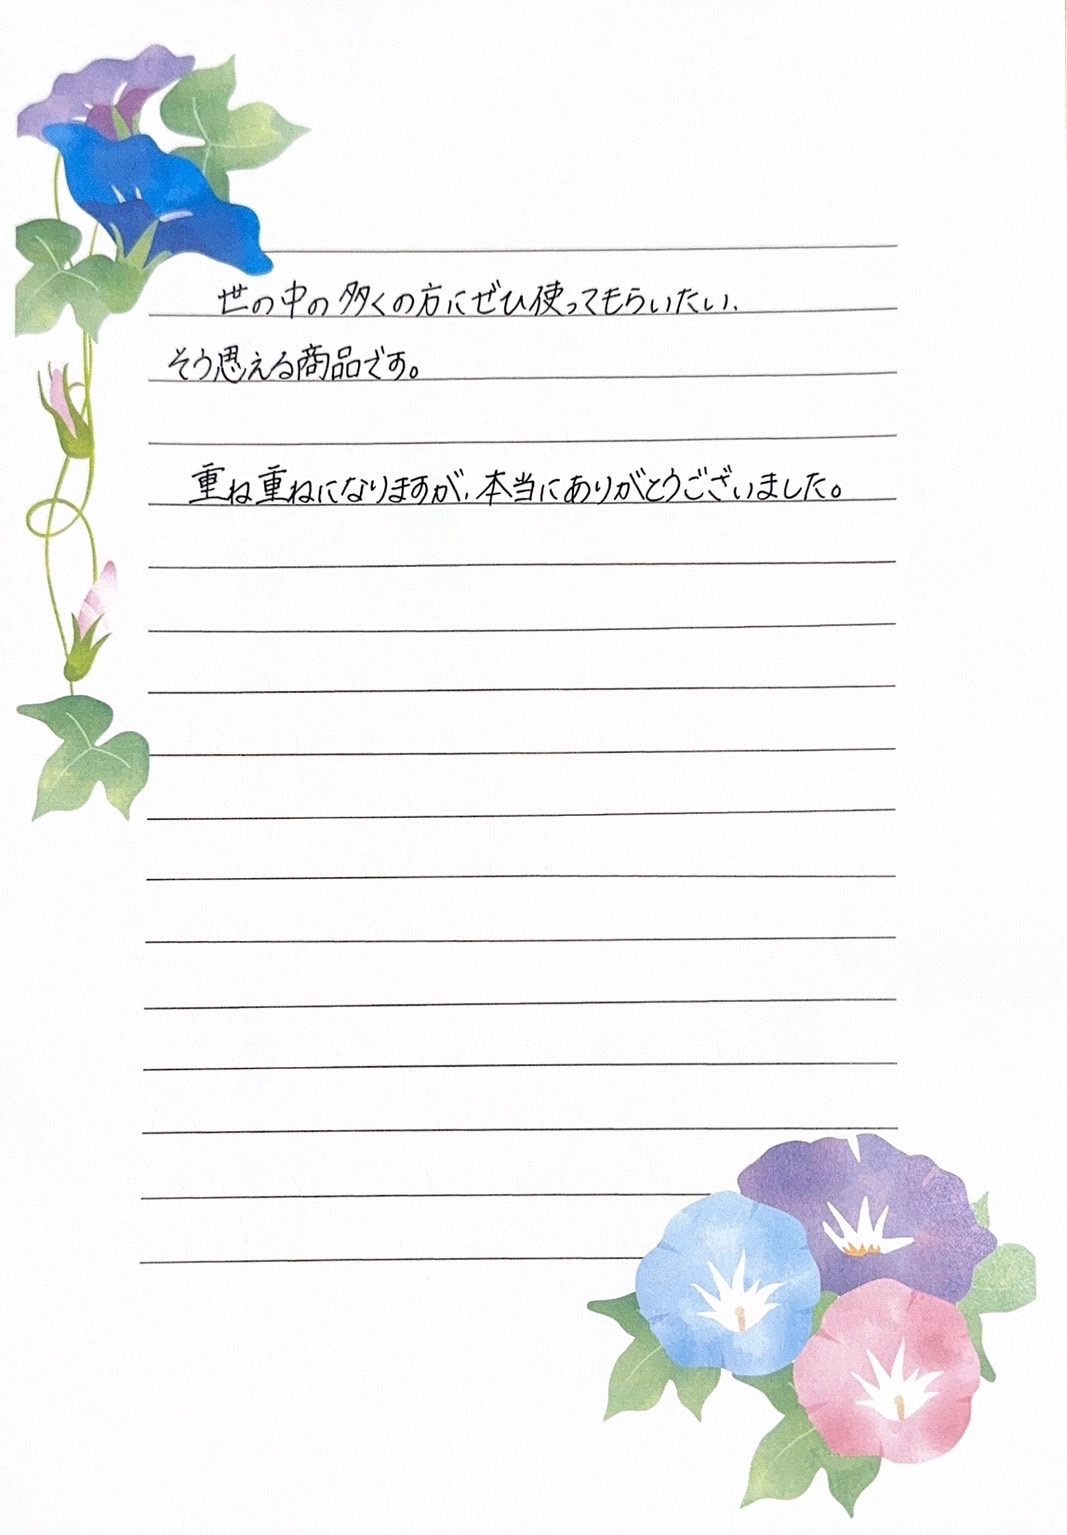 世の中の多くの方にぜひ使ってもらいたい、
そう思える商品です。
重ね重ねになりますが、本当にありがとうございました。